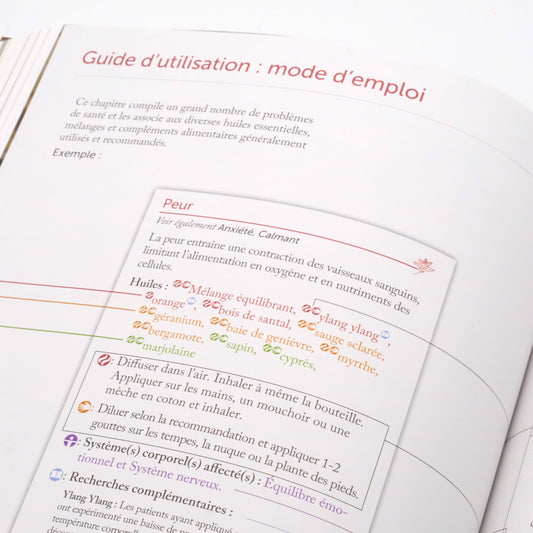 Guide d'utilisation : mode d'emploi
Ce chapitre compile un grand nombre de problèmes
de santé et les associe aux diverses huiles essentielles,
mélanges et compléments alimentaires généralement
utilisés et recommandés.
Exemple :
Peur
Voir également Anxiété, Calmant
La peur entraine une contraction des vaisseaux sanguins,
limitant l'alimentation en oxygène et en nutriments des
cellules.
Huiles : Mélange équilibrant, ylang ylang,
orange, bois de santal, sauge sclarée,
géranium, baie de genièvre, myrrhe,
bergamote, sapin, cyprès,
marjolaine
: Diffuser dans l'air. Inhaler à même la bouteille.
Appliquer sur les mains, un mouchoir ou une
mèche en coton et inhaler.
: Diluer selon la recommandation et appliquer 1-2
gouttes sur les tempes, la nuque ou la plante des pieds.
: Système(s) corporel(s) affecté(s) : Équilibre émo-
tionnel et Système nerveux.
: Recherches complémentaires :
Ylang Ylang : Les patients ayant appliqué
ont expérimenté une baisse de
température